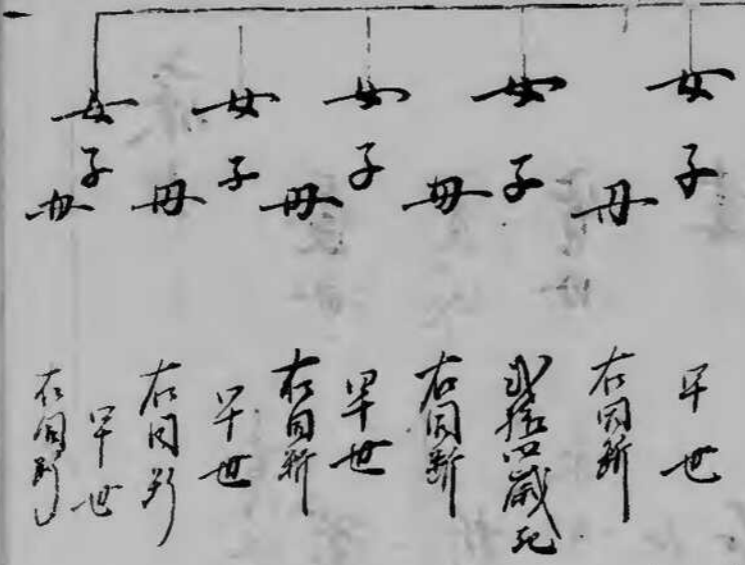 女子 早世
母 右同断
女子 弐拾四歳死
母 右同断
女子 早世
母 右同断
女子 早世
母 右同断
女子 早世
母 右同断